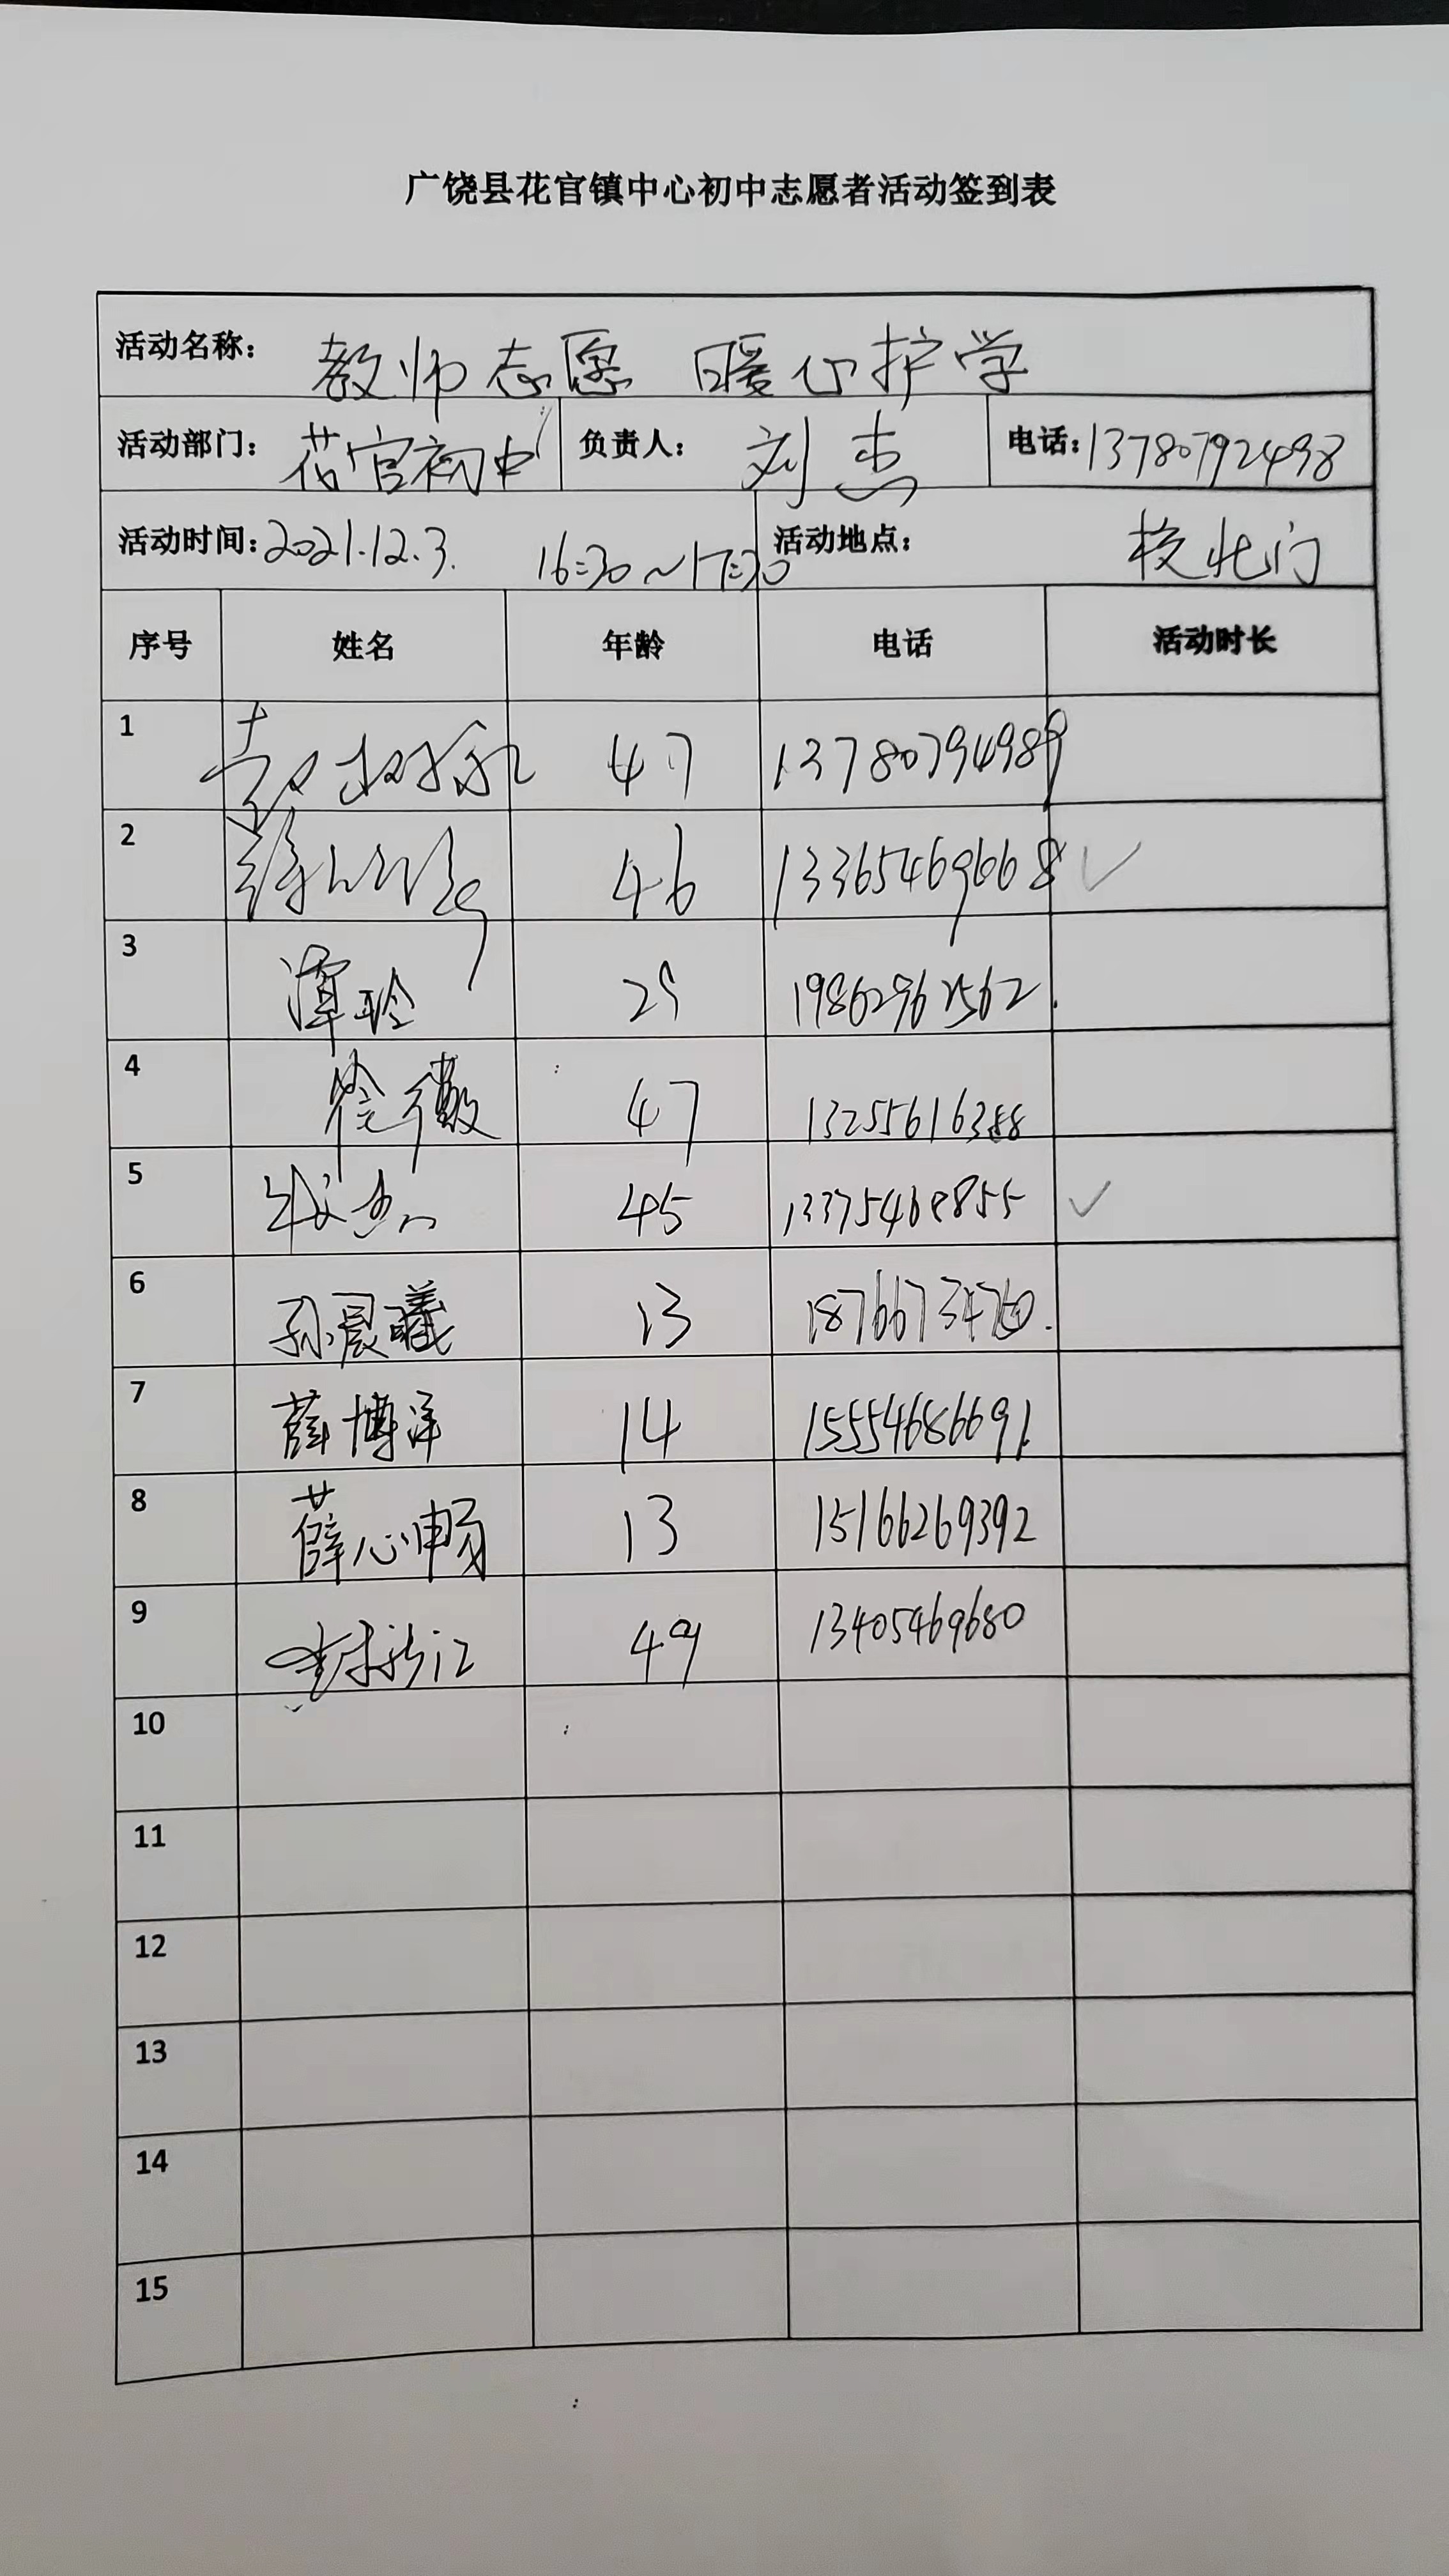 广饶县花官镇中心初中志愿者活动签到表
活动名称： 教师志愿 暖心护学
活动部门： 花官初中 负责人： 刘杰 电话：13780792498
活动时间：2021.12.3. 16:30~17:30 活动地点： 校北门
序号 姓名 年龄 电话 活动时长
1 47 13780794989
2 46 13365469668 ✓
3 谭玲 29 19862962562.
4 47 13255616388
5 45 ✓
6 孙晨曦 13
7 薛博洋 14 15554686691
8 薛心畅 13 15166269392
9 49 13405469680
10
11
12
13
14
15